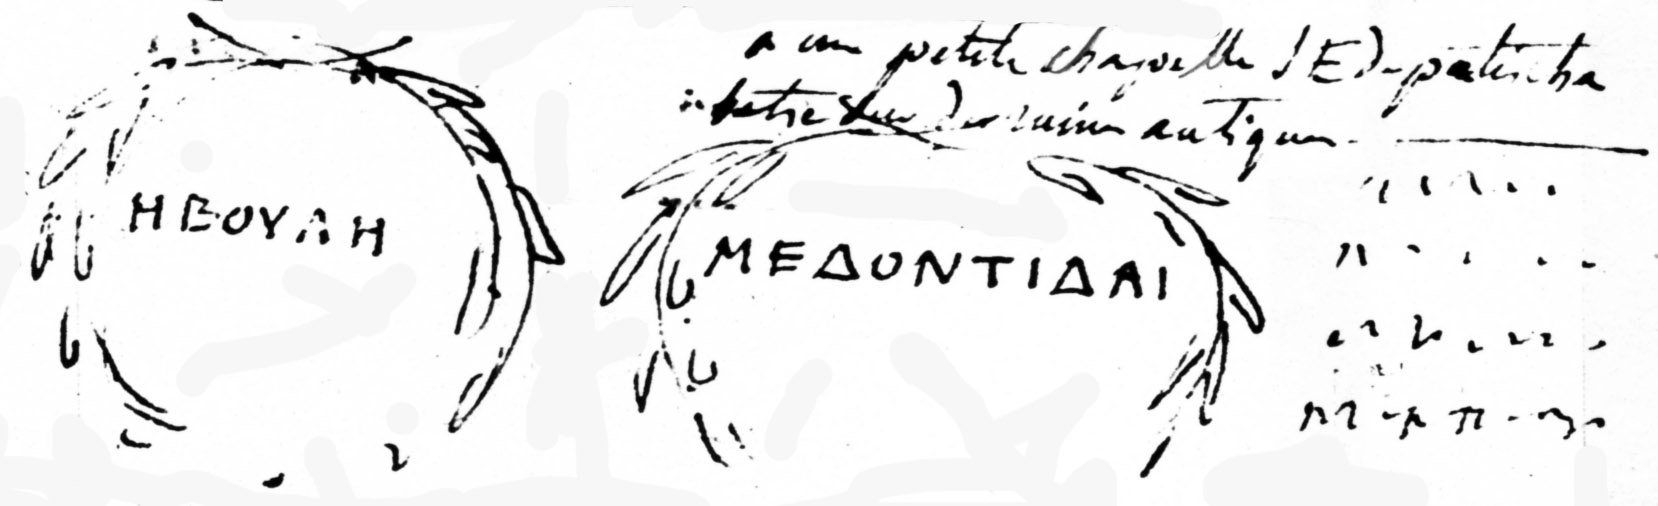 a une petite chapelle d'
batie sur des ruines antiques
Η ΒΟΥΛΗ
ΜΕΔΟΝΤΙΔΑΙ